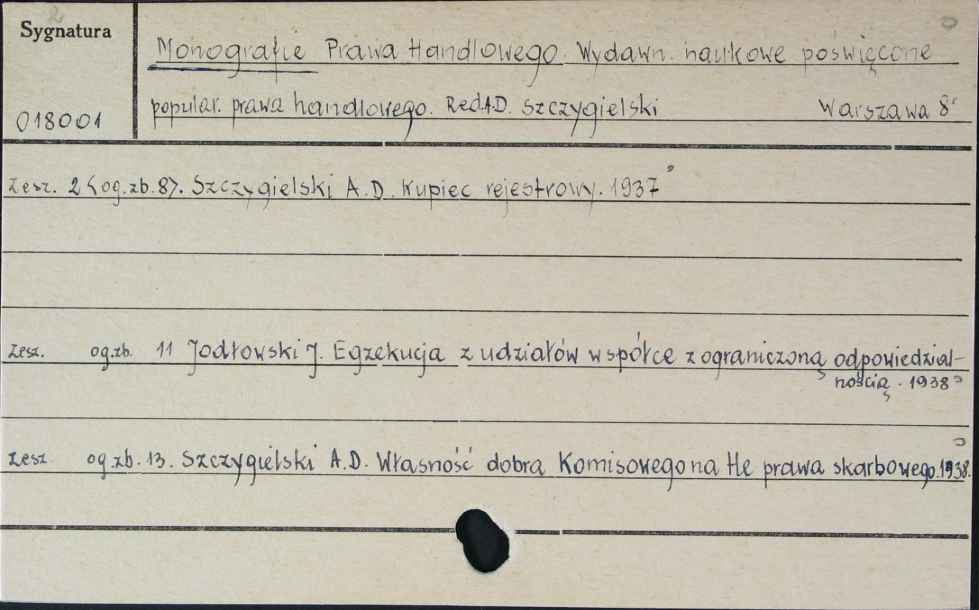 Sygnatura
Monografie Prawa Handlowego. Wydawn. naukowe poświęcone
popular. prawa handlowego. Red. A.D. Szczygielski Warszawa 8°
018001
Zesz. 2 <og.zb. 8>. Szczygielski A.D. Kupiec rejestrowy. 1937
Zesz. og.zb. 11 Jodłowski J. Egzekucja z udziałów w spółce z ograniczoną odpowiedzial-
nością. 1938
Zesz og.zb. 13. Szczygielski A.D. Własność dobra Komisowego na tle prawa skarbowego. 1938.